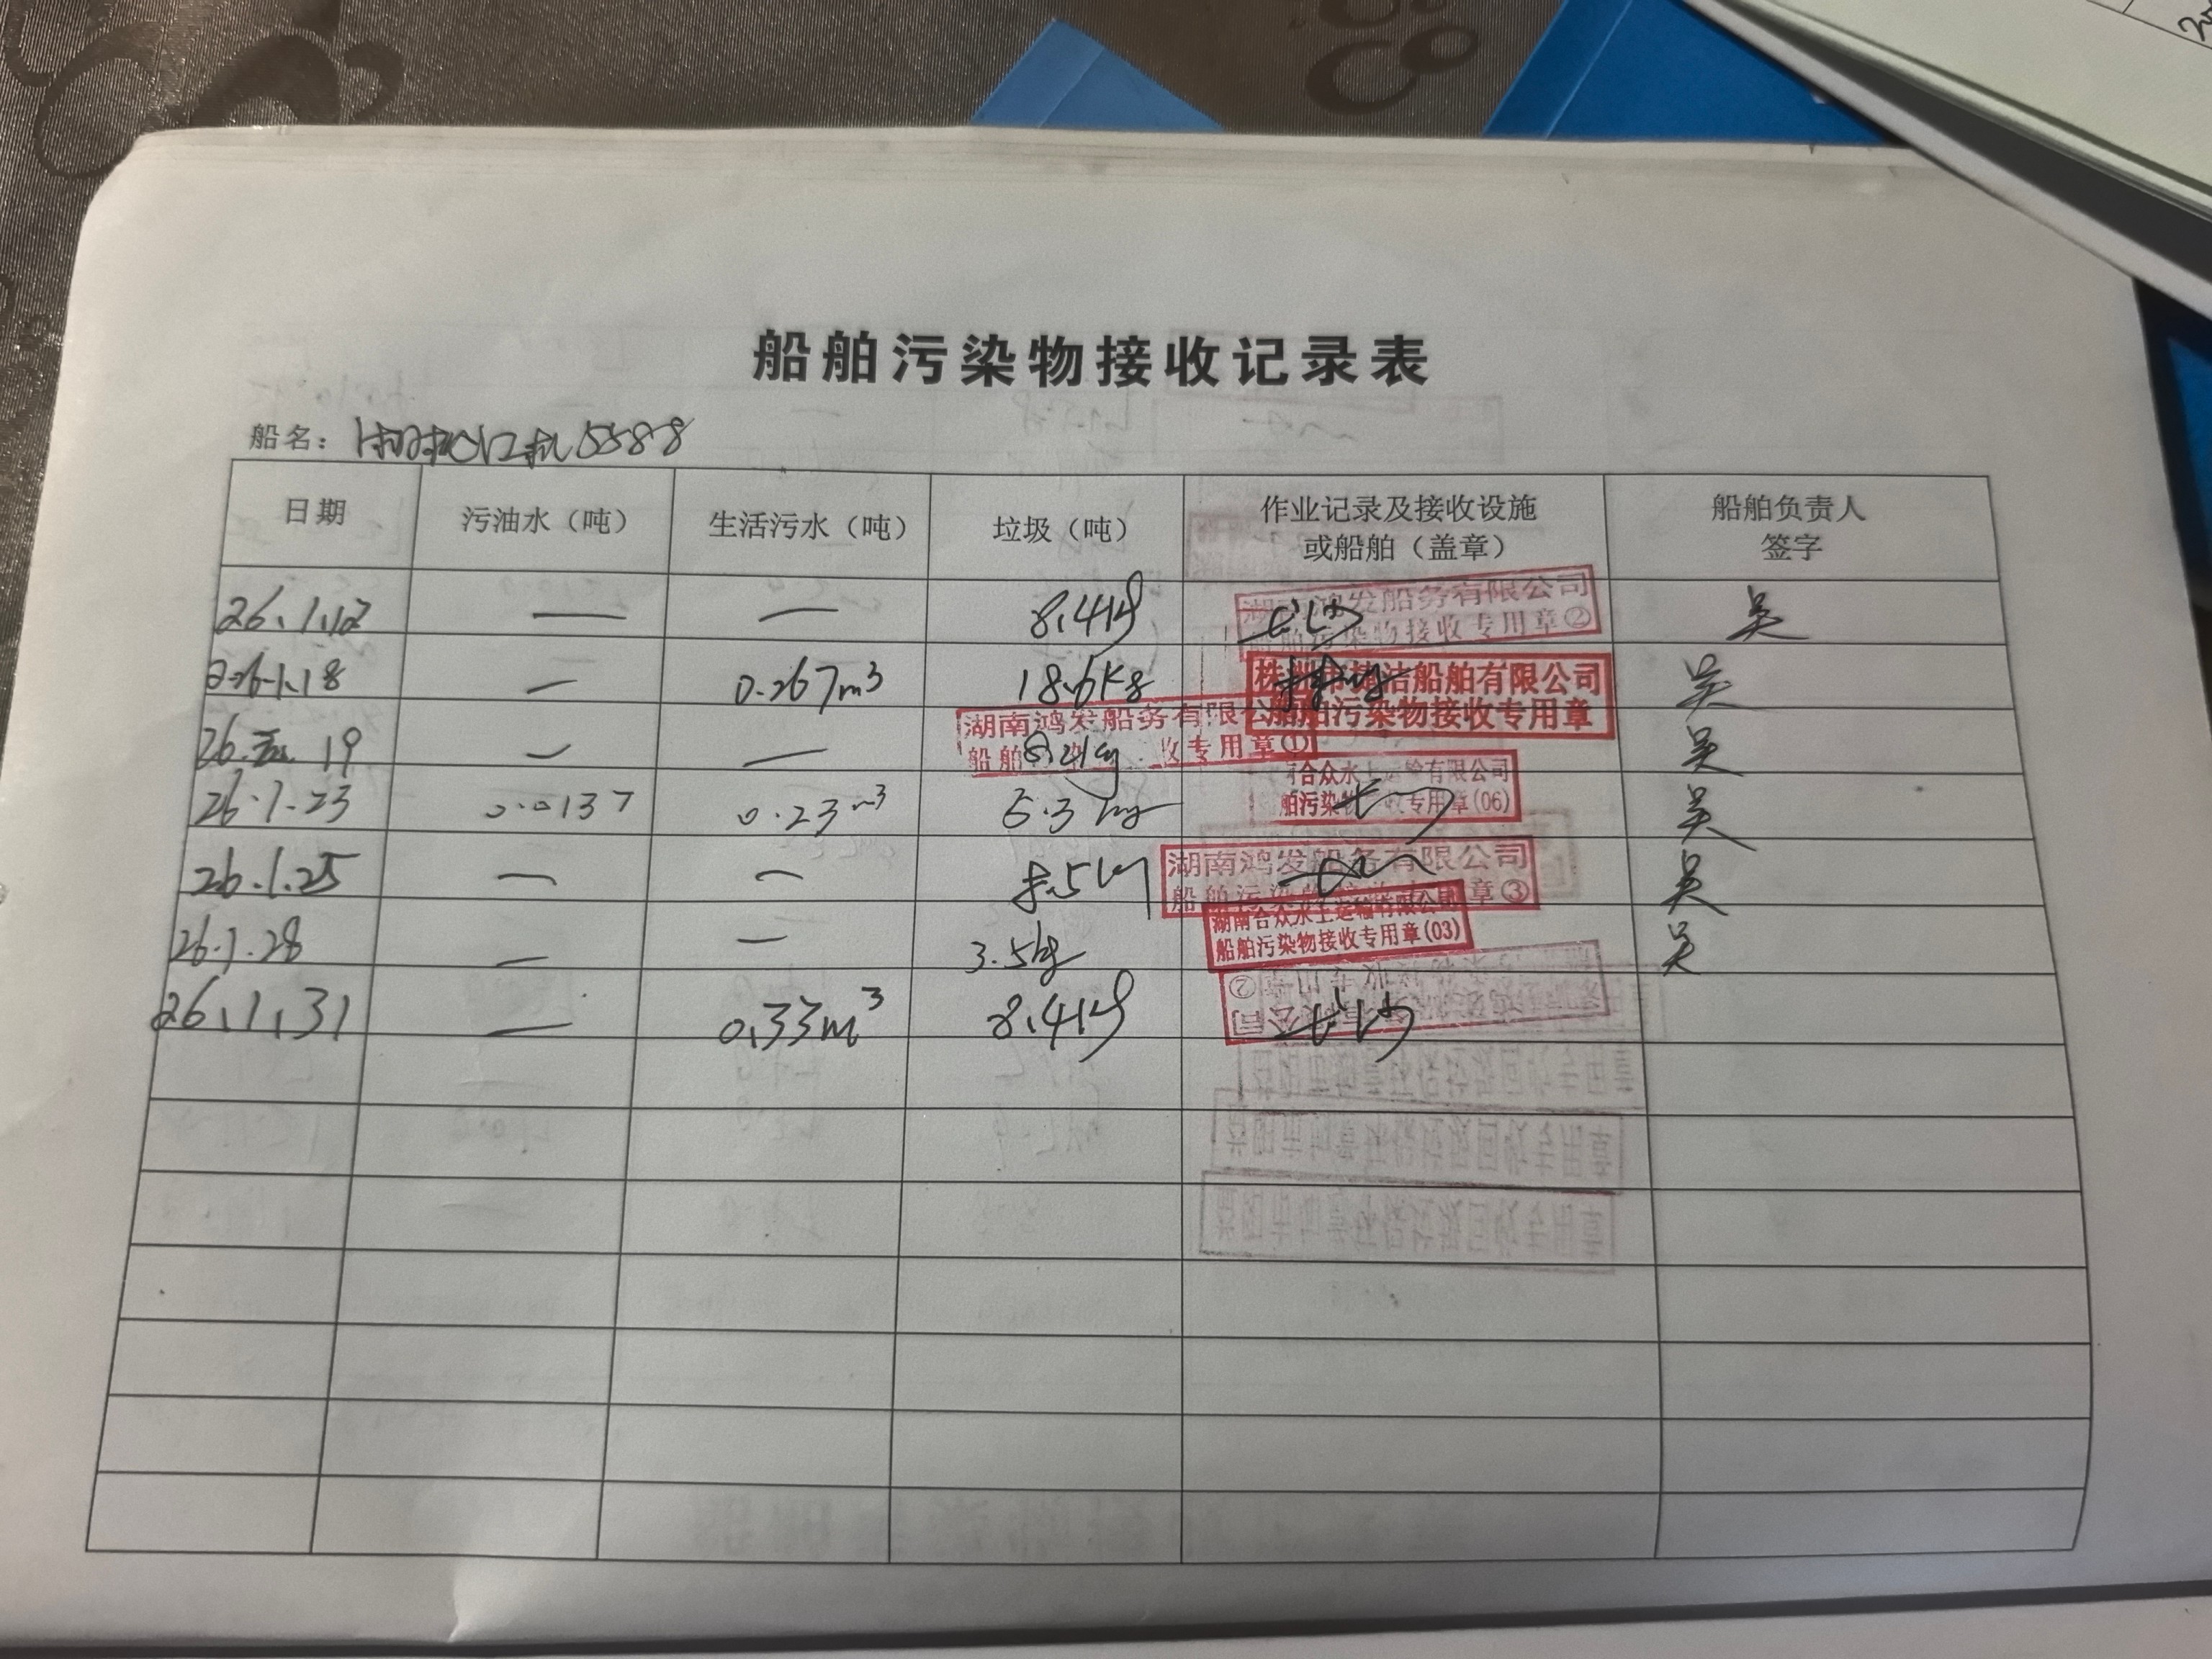 船舶污染物接收记录表
船名： 5588
日期 污油水（吨） 生活污水（吨） 垃圾（吨） 作业记录及接收设施或船舶（盖章） 船舶负责人签字
26.1.12 — — 8.4kg 长沙 湖南鸿发船务有限公司 船舶污染物接收专用章② 吴
26.1.18 — 0.267m³ 18.6kg 株洲市 洁船舶有限公司 船舶污染物接收专用章 吴
26. 19 — — 湖南鸿发船务有限公 船舶 收专用章① 吴
26.1.23 0.0137 0.23m³ 5.3kg 合众水上运输有限公司 舶污染物接收专用章(06) 吴
26.1.25 — — 湖南鸿发船务有限公司 船舶污染物接收专用章③ 吴
26.1.28 — — 3.5kg 湖南合众水上运输有限公司 船舶污染物接收专用章(03) 吴
26.1.31 — 0.33m³ 8.4kg 长沙